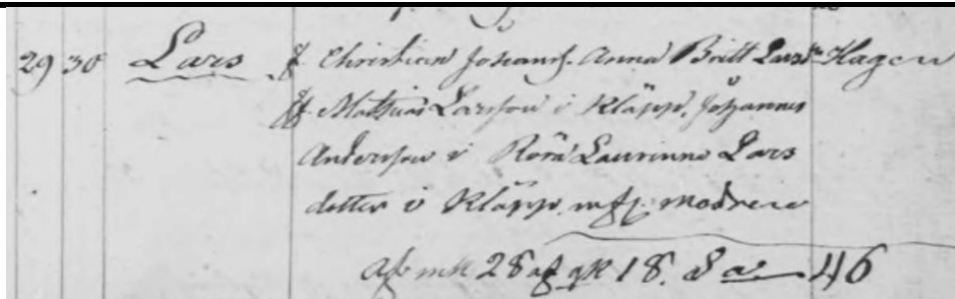 29 30 Lars f. Christian Johans. Anna Britt Larsdr Hagen
ff Mathias Larsson i Kläpp, Johannes
Andersson i Rörå Laurinna Lars
dotter i Kläpp. modren
af mk 28 af qk 18. Sa 46